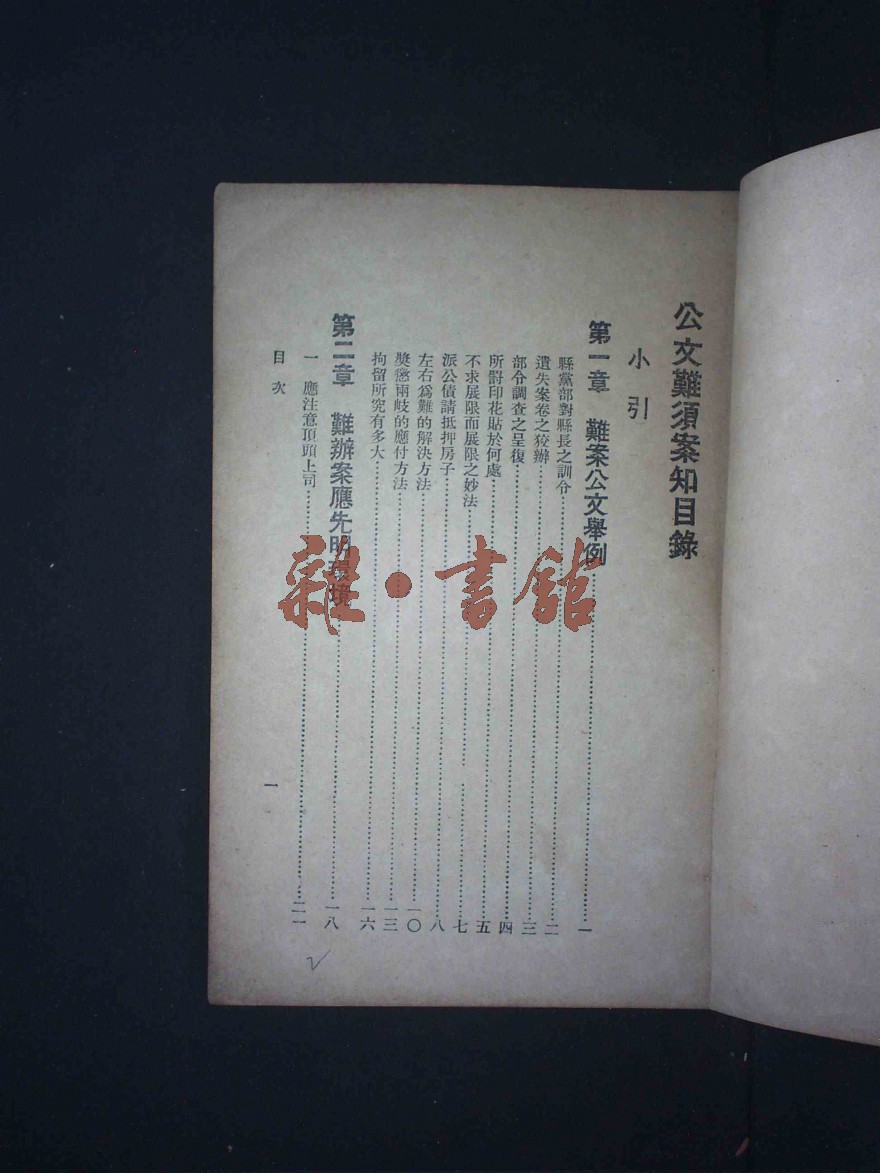 公文難須案知目錄
小引
第一章 難案公文舉例……一
縣黨部對縣長之訓令……二
遺失案卷之狡辦……三
部令調查之呈復……四
所謂印花貼於何處……五
不求展限而展限之妙法……七
派公債請抵押房子……八
左右爲難的解決方法……一〇
獎懲兩岐的應付方法……一三
拘留所究有多大……一六
第二章 難辦案應先明環境……一八
一 應注意頂頭上司……二一
目次
一
雜·書館